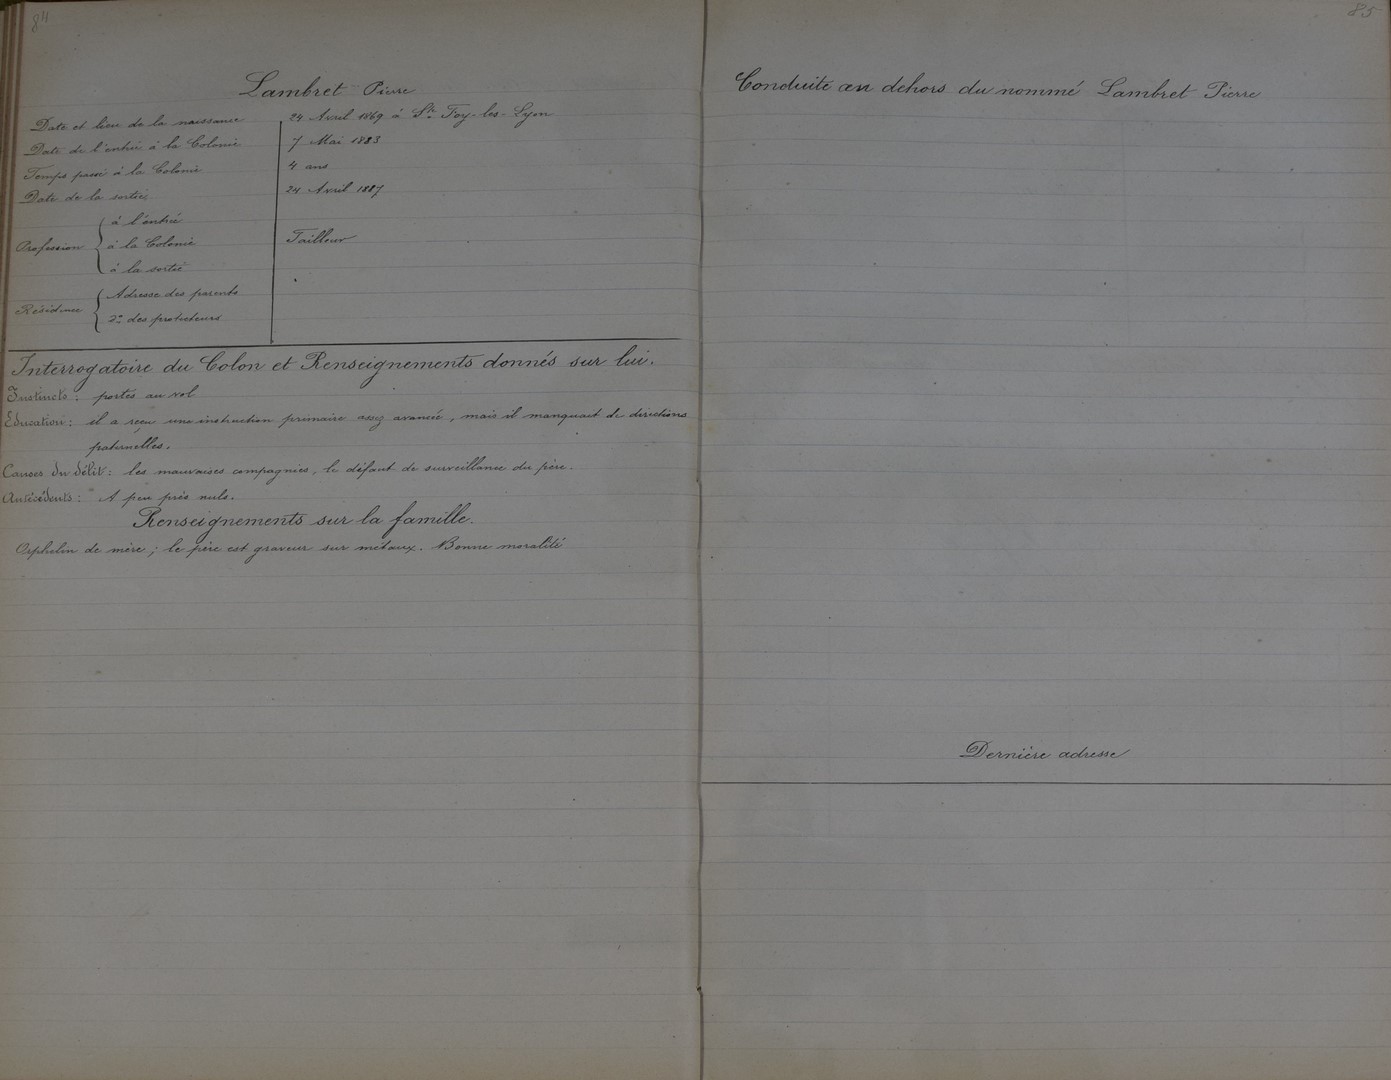 84
Lambret Pierre
Date et lieu de la naissance 24 Avril 1869 à Ste Foy-les-Lyon
Date de l'entrée à la Colonie 7 Mai 1883
Temps passé à la Colonie 4 ans
Date de la sortie 24 Avril 1887
à l'entrée
Profession à la Colonie Tailleur
à la sortie
Adresse des parents
Résidence
do des protecteurs
Interrogatoire du Colon et Renseignements donnés sur lui.
Instincts : portés au vol
Education : il a reçu une instruction primaire assez avancée, mais il manquait de directions
paternelles.
Causes du délit : les mauvaises compagnies, le défaut de surveillance du père.
Antécédents : A peu près nuls.
Renseignements sur la famille.
Orphelin de mère ; le père est graveur sur métaux. Bonne moralité
85
Conduite au dehors du nommé Lambret Pierre
Dernière adresse